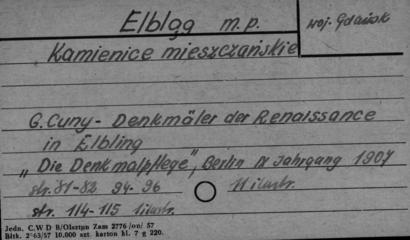 Elbląg m.p.
Woj. Gdańsk
Kamienice mieszczańskie
G. Cuny - Denkmäler der Renaissance
in Elbling
"Die Denkmalpflege", Berlin IX Jahrgang 1907
str. 81-82 94-96 11 ilustr.
str. 114-115 1 ilustr.
Jedn. C.W D B/Olsztyn Zam 2776/on/ 57
Bltk. 2*63/57 10.000 szt. karton kl. 7 g 220.